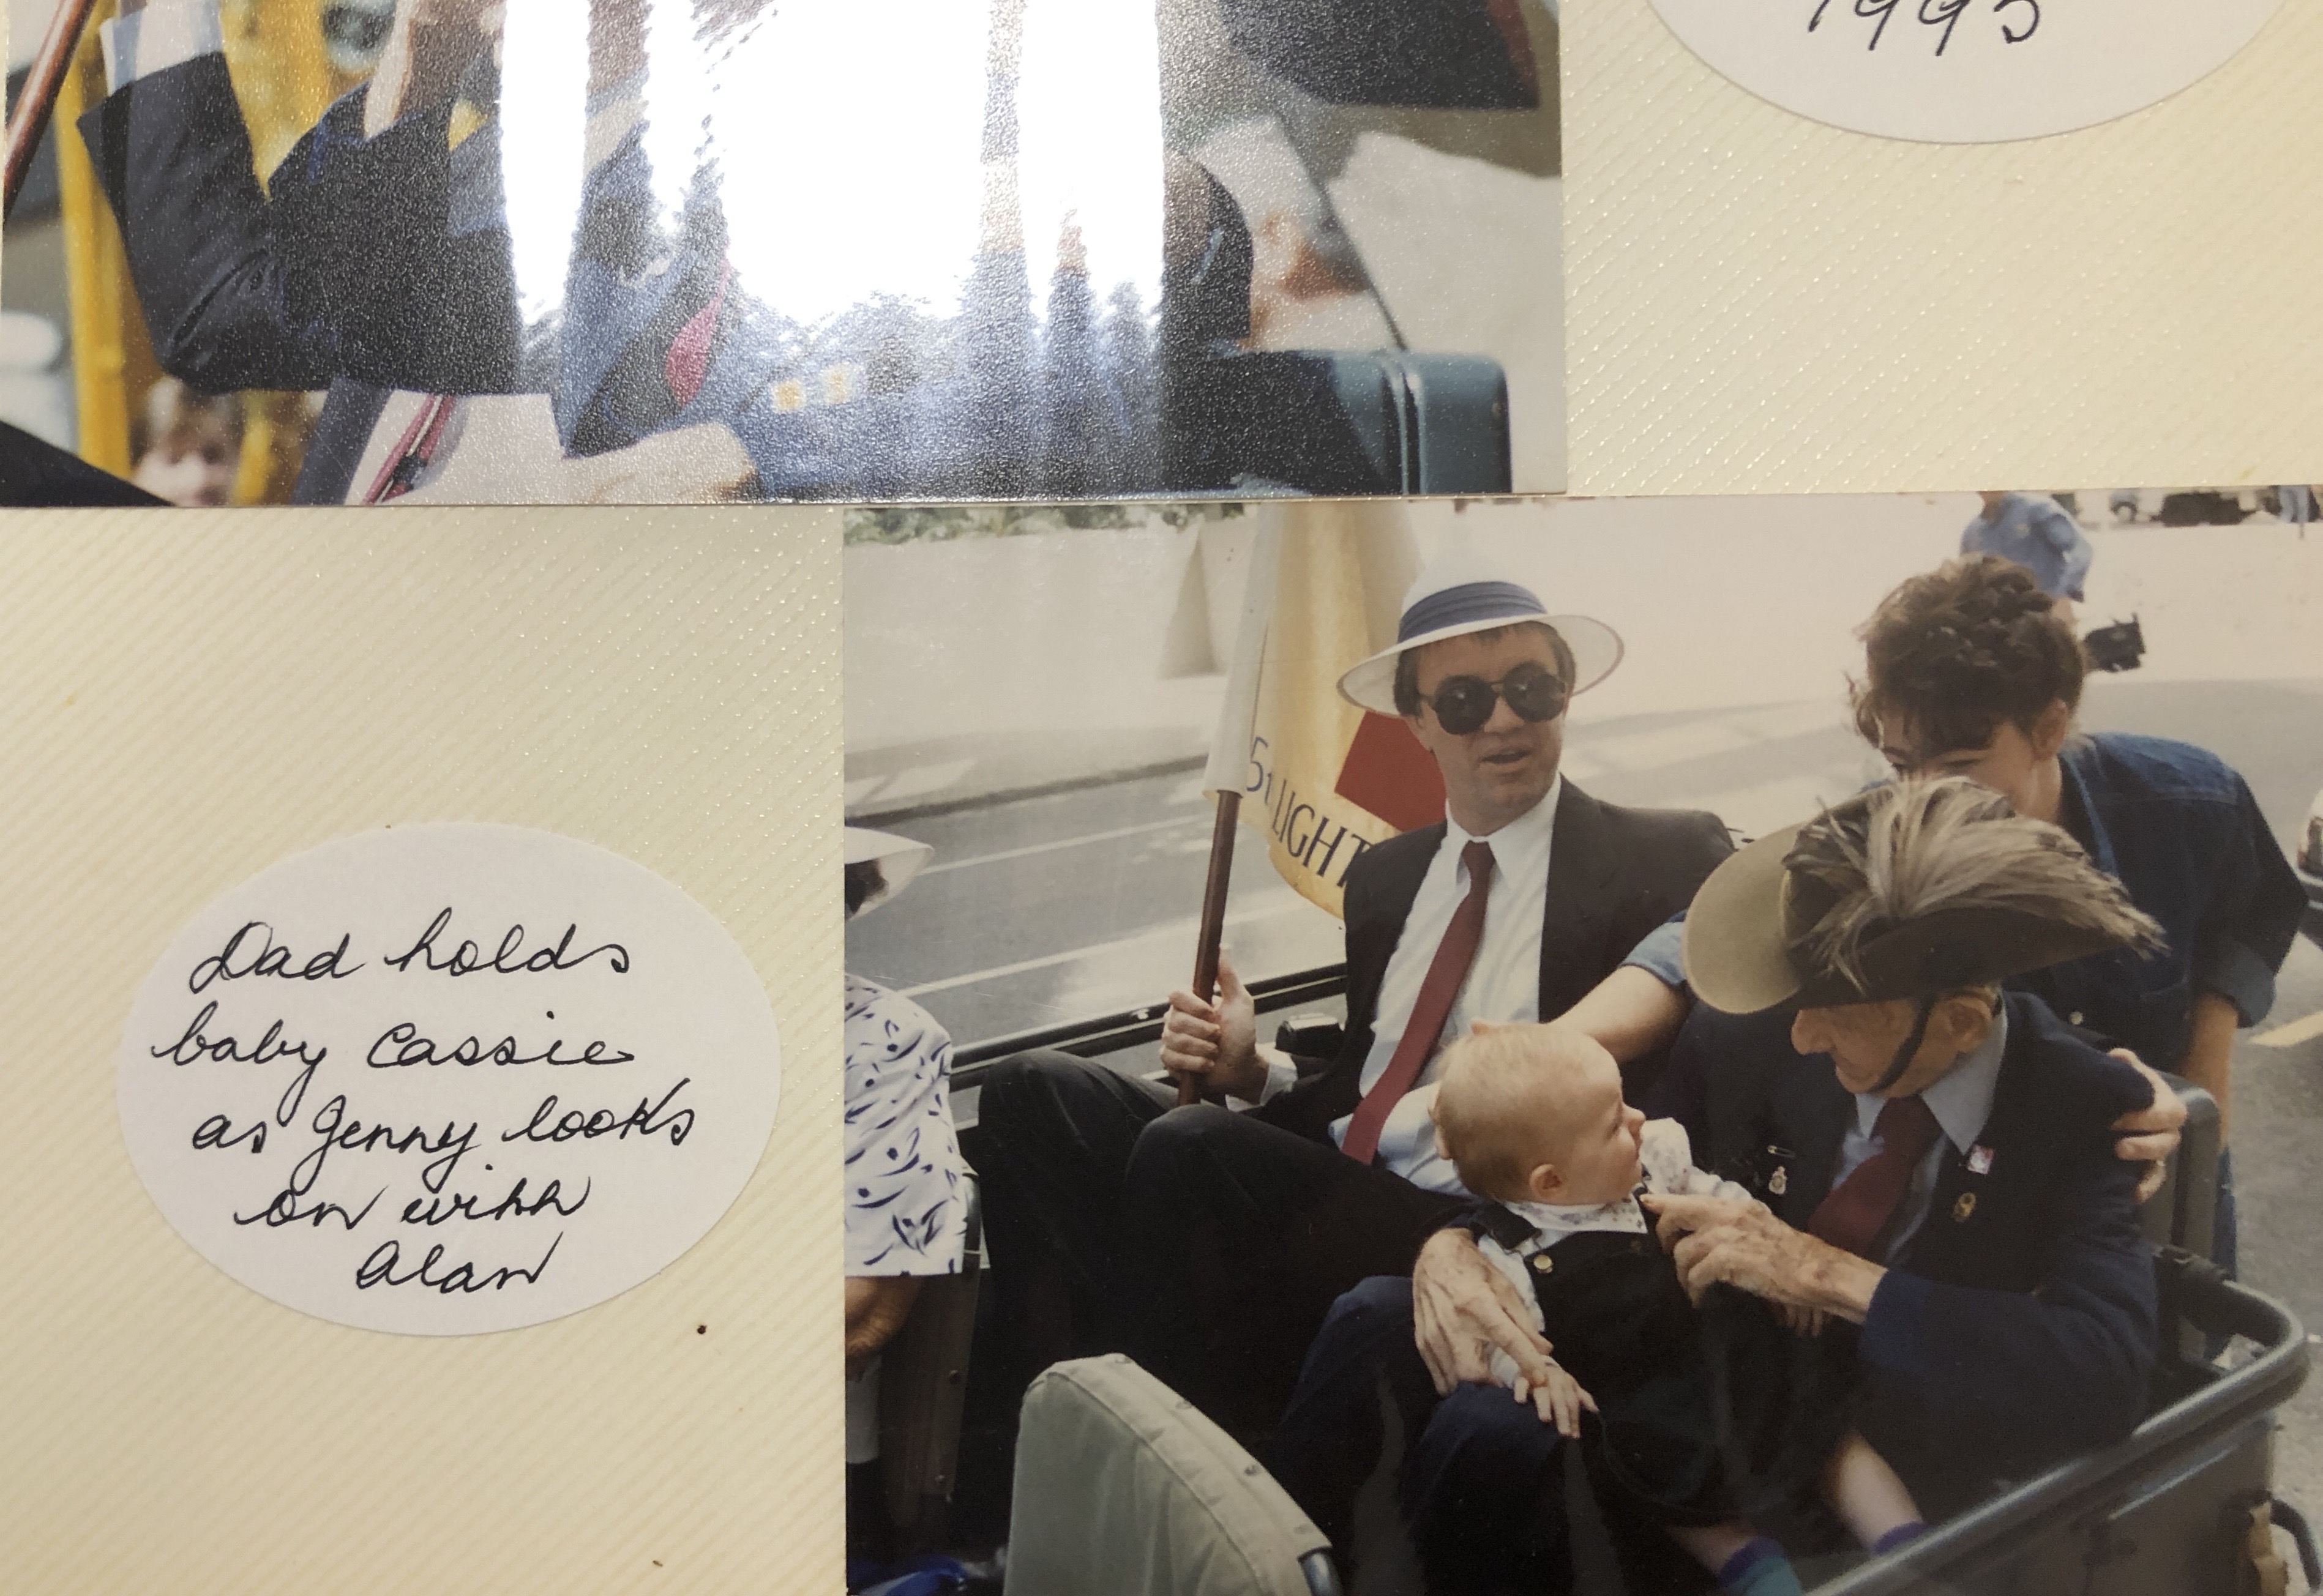 1995
Dad holds
baby Cassie
as Jenny looks
on with
Alan
LIGHT